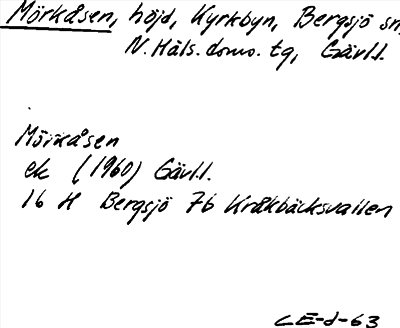 Mörkåsen, höjd, Kyrkbyn, Bergsjö sn,
N. Häls. doms. tg, Gävl.l.
Mörkåsen
ek (1960) Gävl.l.
16 H Bergsjö 7b Kråkbäcksvallen
CE-d-63